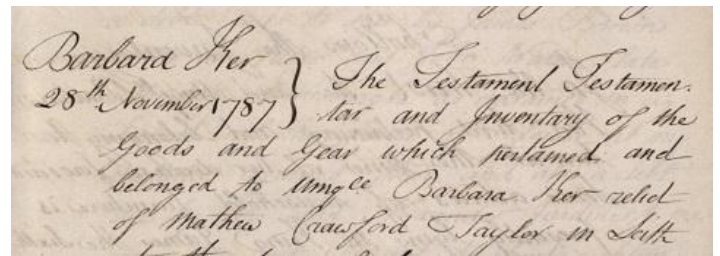 Barbara Ker
28th November 1787
The Testament Testamen-
tar and Inventory of the
Goods and Gear which pertained and
belonged to Umqle Barbara Ker relict
of Mathew Crawford Taylor in Leith